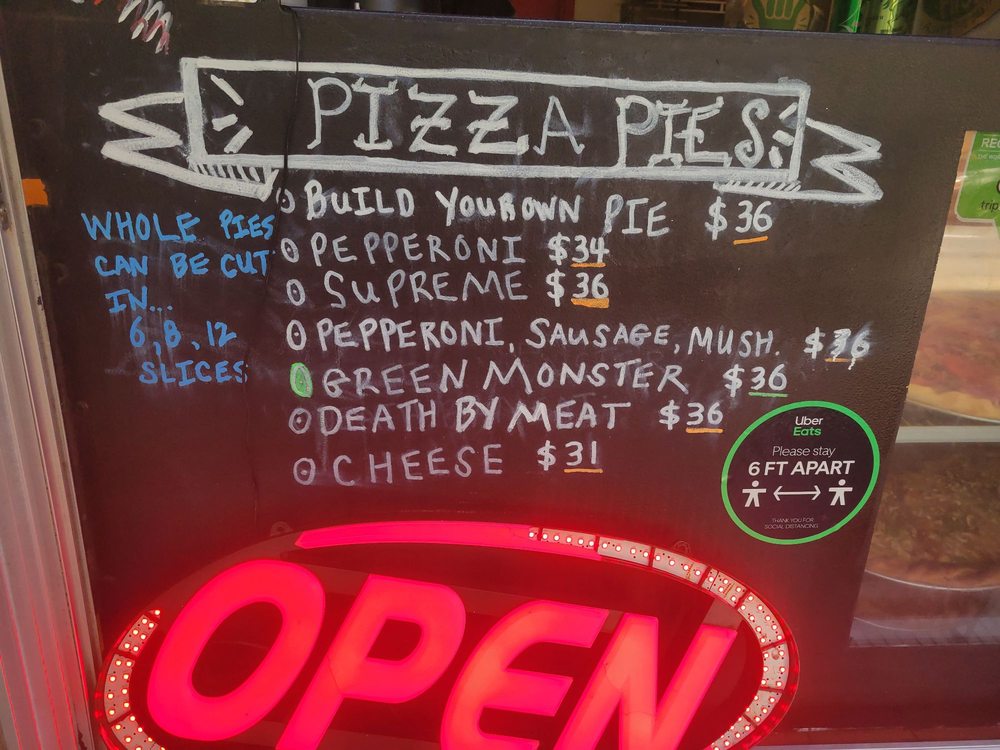 PIZZA PIES
BUILD YOUR OWN PIE $36
PEPPERONI $34
SUPREME $36
PEPPERONI, SAUSAGE, MUSH. $36
GREEN MONSTER $36
DEATH BY MEAT $36
CHEESE $31
WHOLE PIES
CAN BE CUT
IN...
6, 8, 12
SLICES
Uber
Eats
Please stay
6 FT APART
THANK YOU FOR
SOCIAL DISTANCING
OPEN
trip